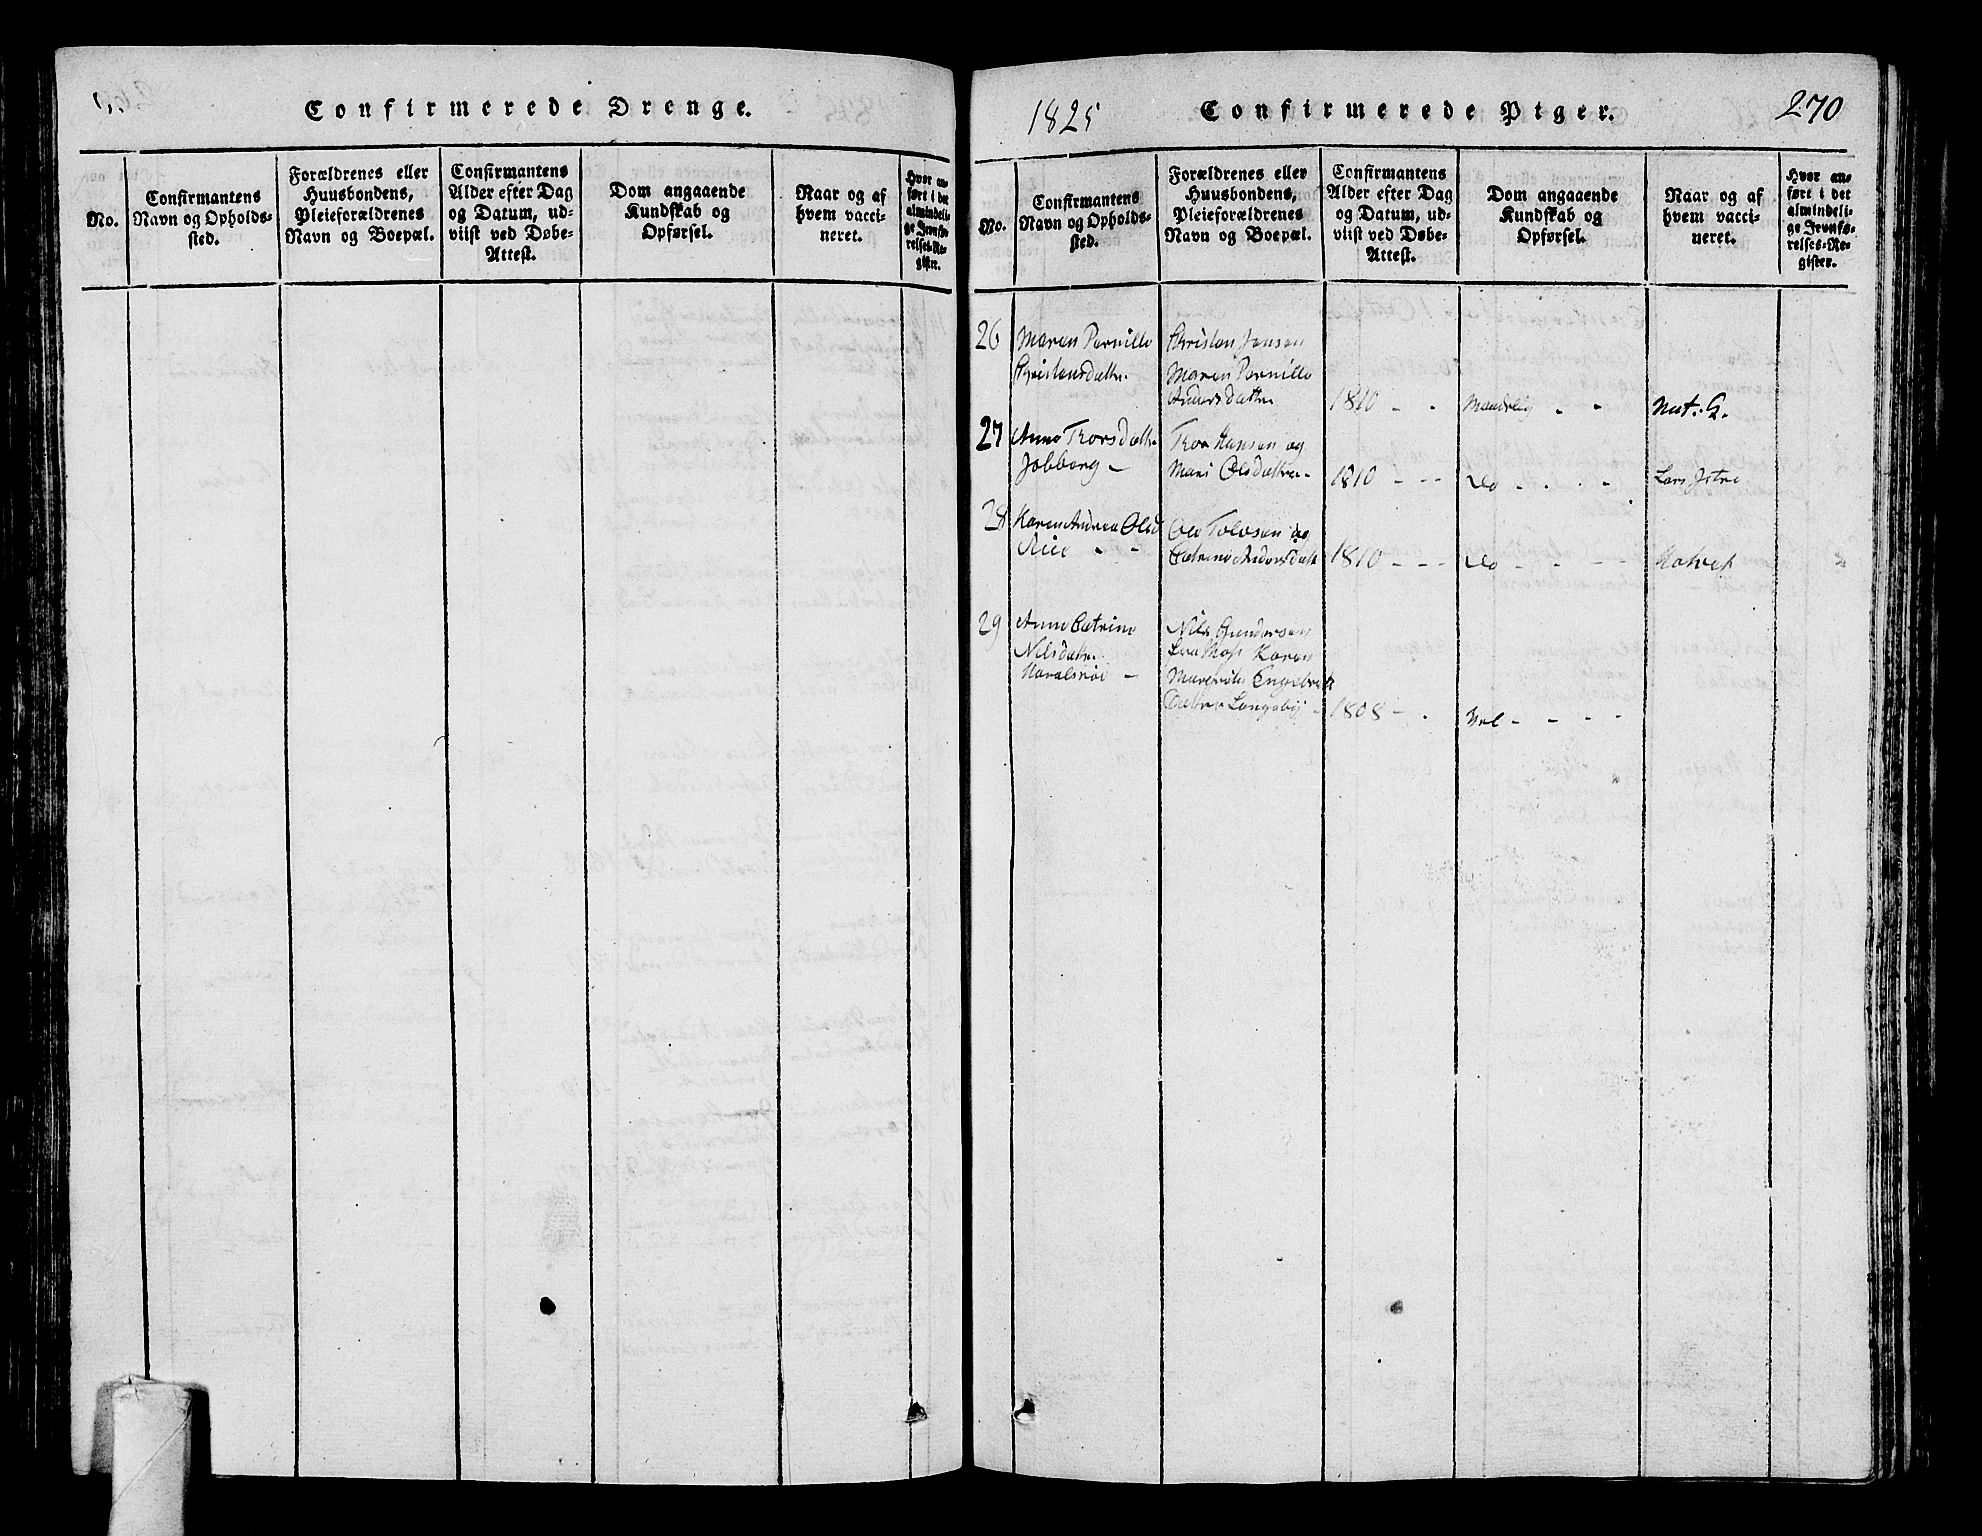 Confirmerede Drenge.
No.
Confirmantens
Navn og Opholds-
sted.
Forældrenes eller
Huusbondens,
Pleieforældrenes
Navn og Boepæl.
Confirmantens
Alder efter Dag
og Datum, ud-
viist ved Døbe-
Attest.
Dom angaaende
Kundskab og
Opførsel.
Naar og af
hvem vacci-
neret.
Hvor an-
ført i det
almindeli-
ge Jevnfø-
relses-Re-
gister.
1825
Confirmerede Piger.
270
No.
Confirmantens
Navn og Opholds-
sted.
Forældrenes eller
Huusbondens,
Pleieforældrenes
Navn og Boepæl.
Confirmantens
Alder efter Dag
og Datum, ud-
viist ved Døbe-
Attest.
Dom angaaende
Kundskab og
Opførsel.
Naar og af
hvem vacci-
neret.
Hvor an-
ført i det
almindeli-
ge Jevnfø-
relses-Re-
gister.
26
Maren Pernille
Christensdatter
Christen Jensen
Maren Pernille
Andersdatter
1810 - -
Maadelig - -
27
Anne Thorsdatter
Jobborg -
Thor Hansen og
Mari Olsdatter
1810 - - -
do - - - -
Lars Istre
28
Karen Andrea Olsd
Ole Tolvsen og
Catrine Andersdatt
1810 - - -
do - - - -
29
Anne Catrine
Nilsdatter
Nils Gundersen
Karen
Engebrets
Datter Langeby -
1808 - -
Vel - - - -